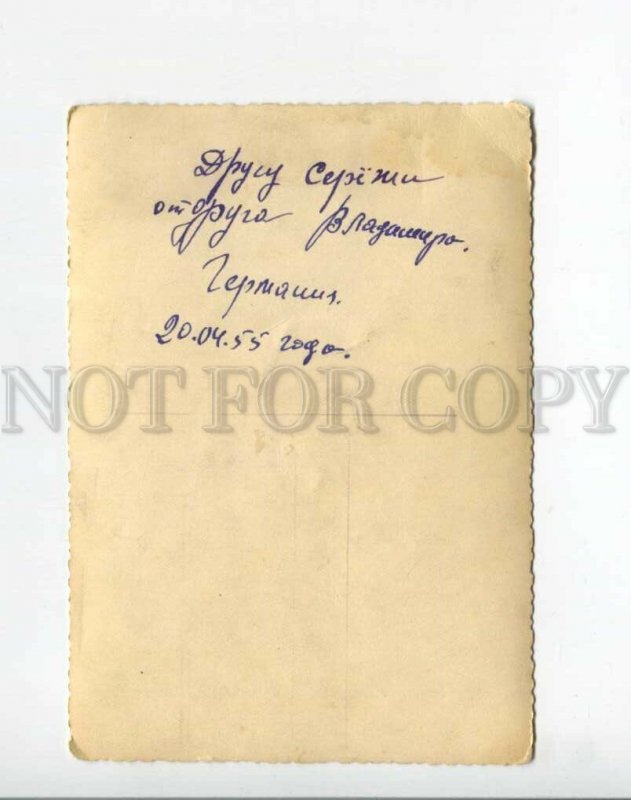 Другу Серёжи
от друга Владимира.
Германия.
20.04.55 года.
NOT FOR COPY